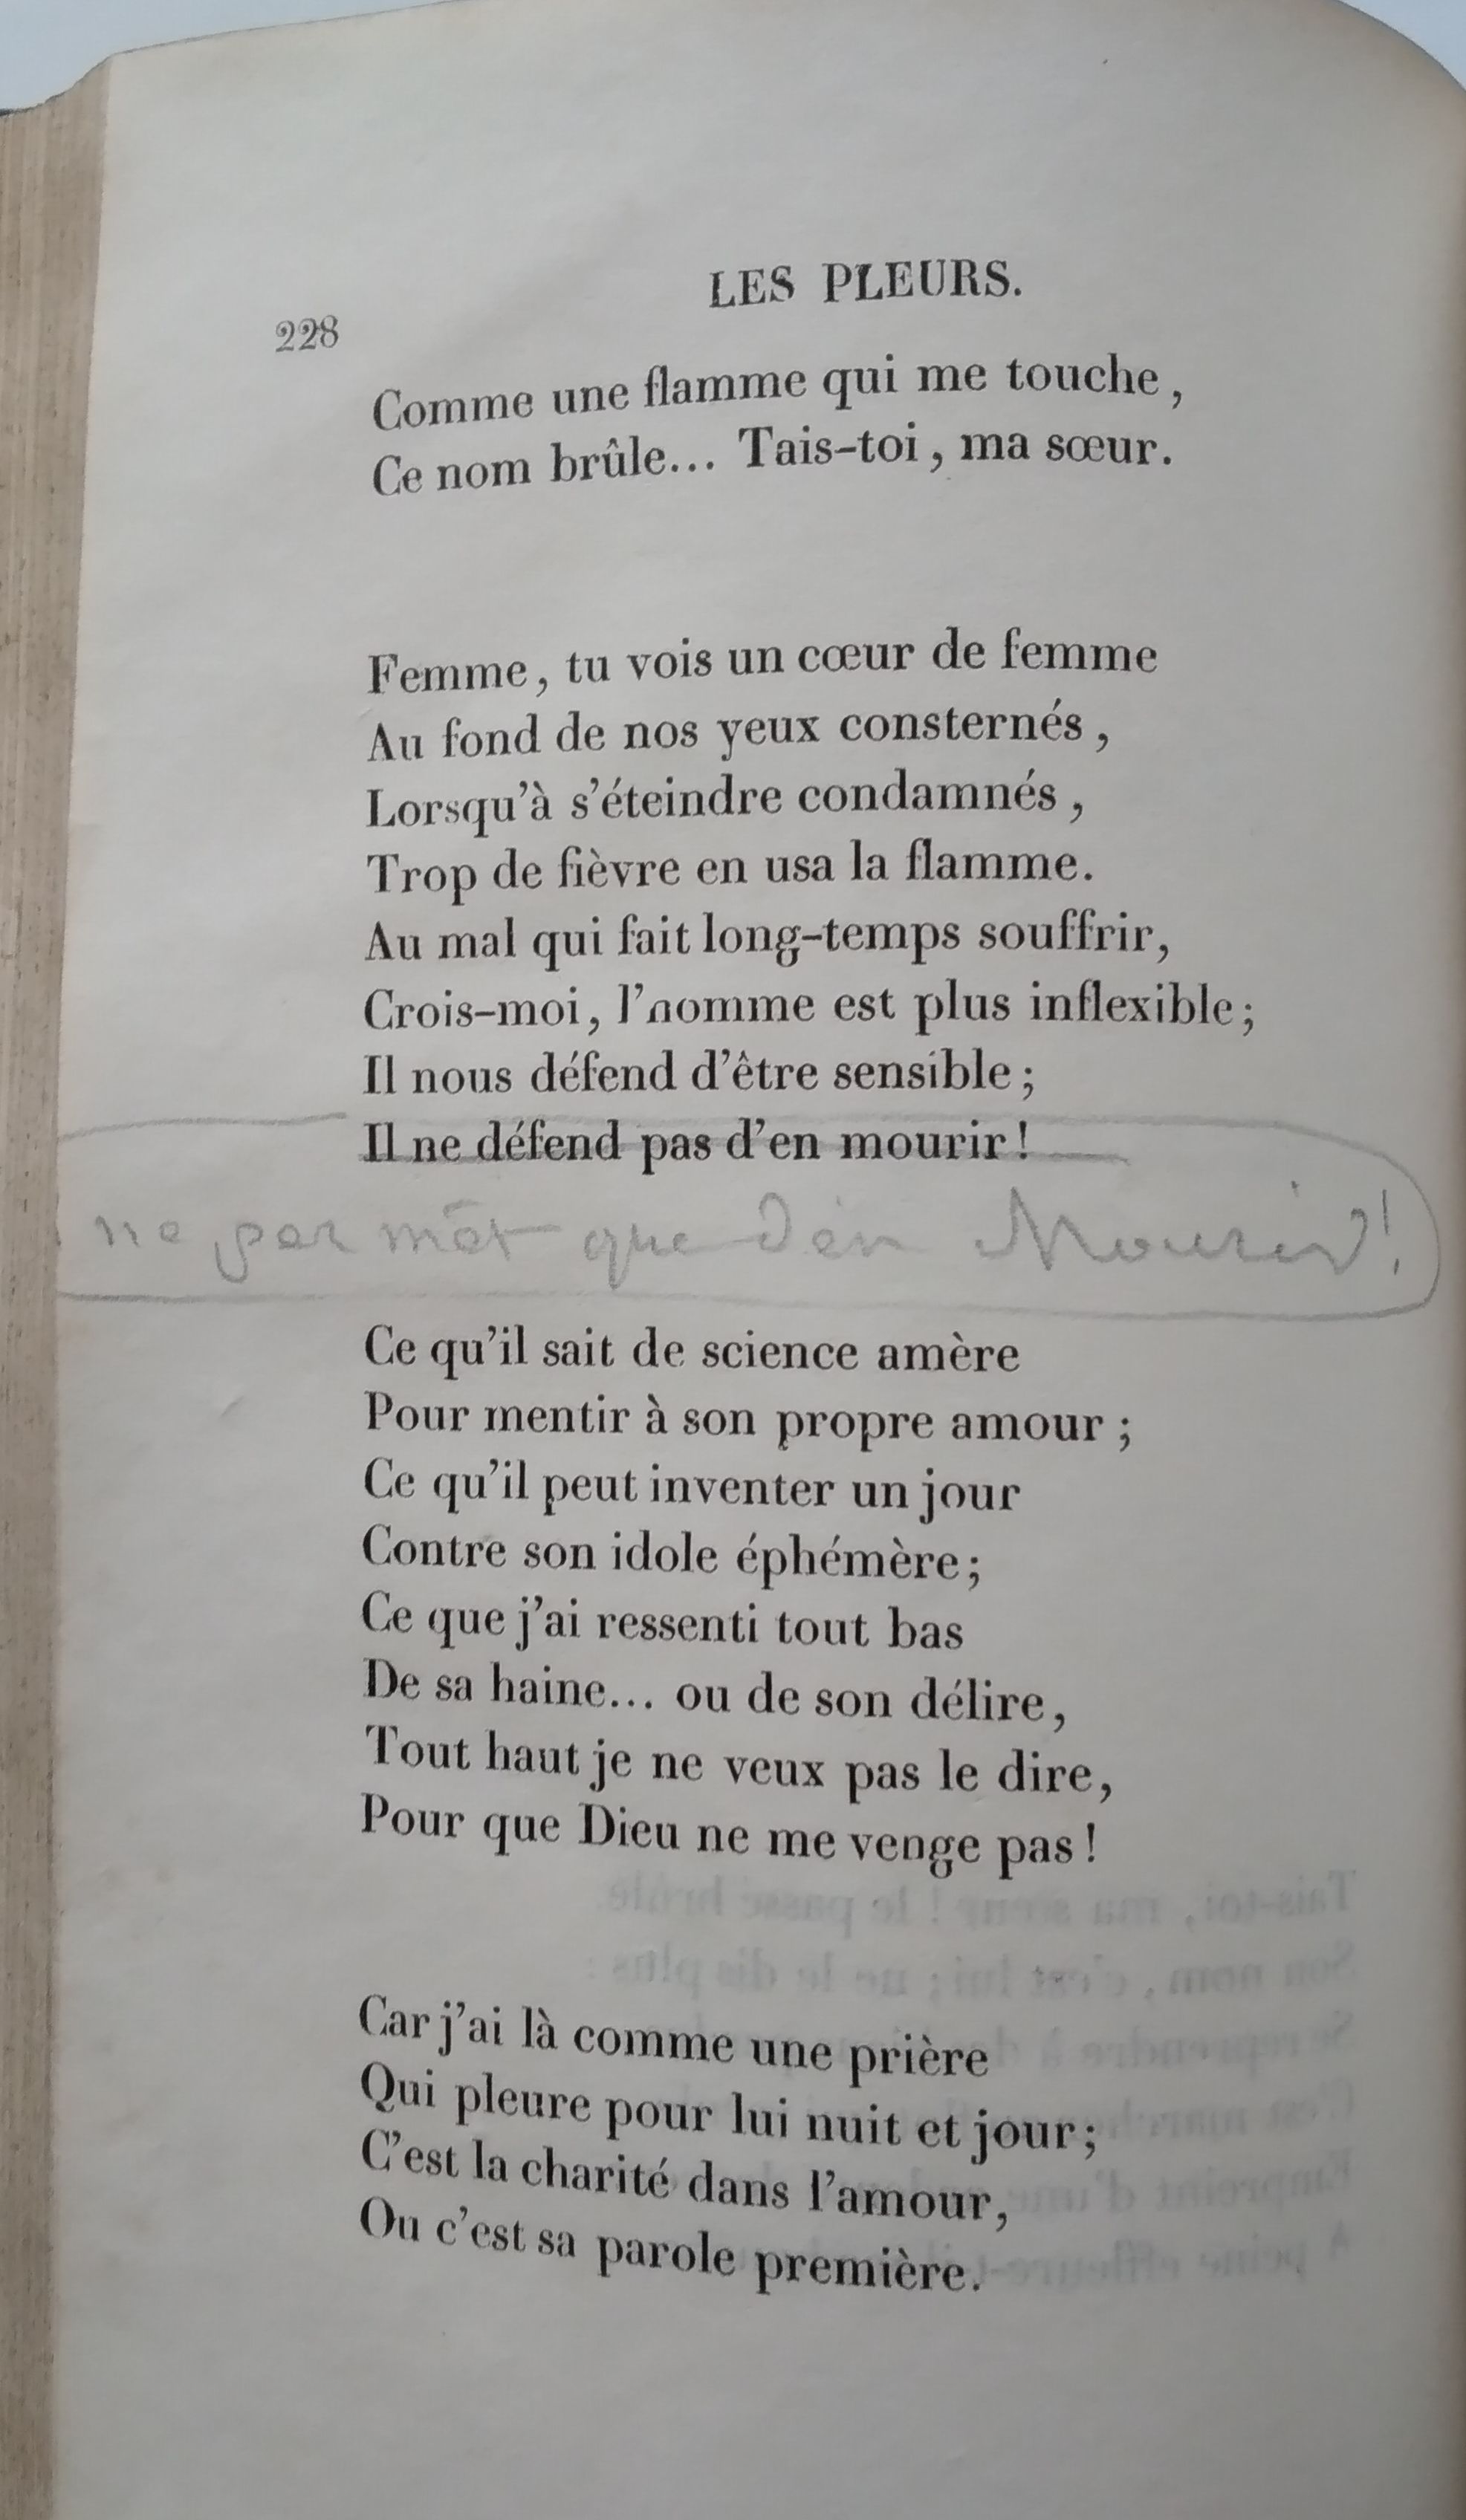 LES PLEURS.
228
Comme une flamme qui me touche,
Ce nom brûle... Tais-toi, ma sœur.
Femme, tu vois un cœur de femme
Au fond de nos yeux consternés,
Lorsqu'à s'éteindre condamnés,
Trop de fièvre en usa la flamme.
Au mal qui fait long-temps souffrir,
Crois-moi, l'homme est plus inflexible;
Il nous défend d'être sensible;
Il ne défend pas d'en mourir!
ne permêt que d'en Mourir!
Ce qu'il sait de science amère
Pour mentir à son propre amour;
Ce qu'il peut inventer un jour
Contre son idole éphémère;
Ce que j'ai ressenti tout bas
De sa haine... ou de son délire,
Tout haut je ne veux pas le dire,
Pour que Dieu ne me venge pas!
Car j'ai là comme une prière
Qui pleure pour lui nuit et jour;
C'est la charité dans l'amour,
Ou c'est sa parole première.